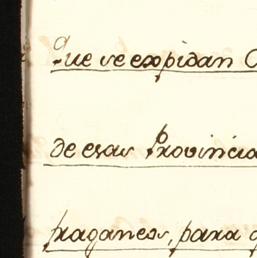 Que se expidan
de esas Provincia
fraganeos, para